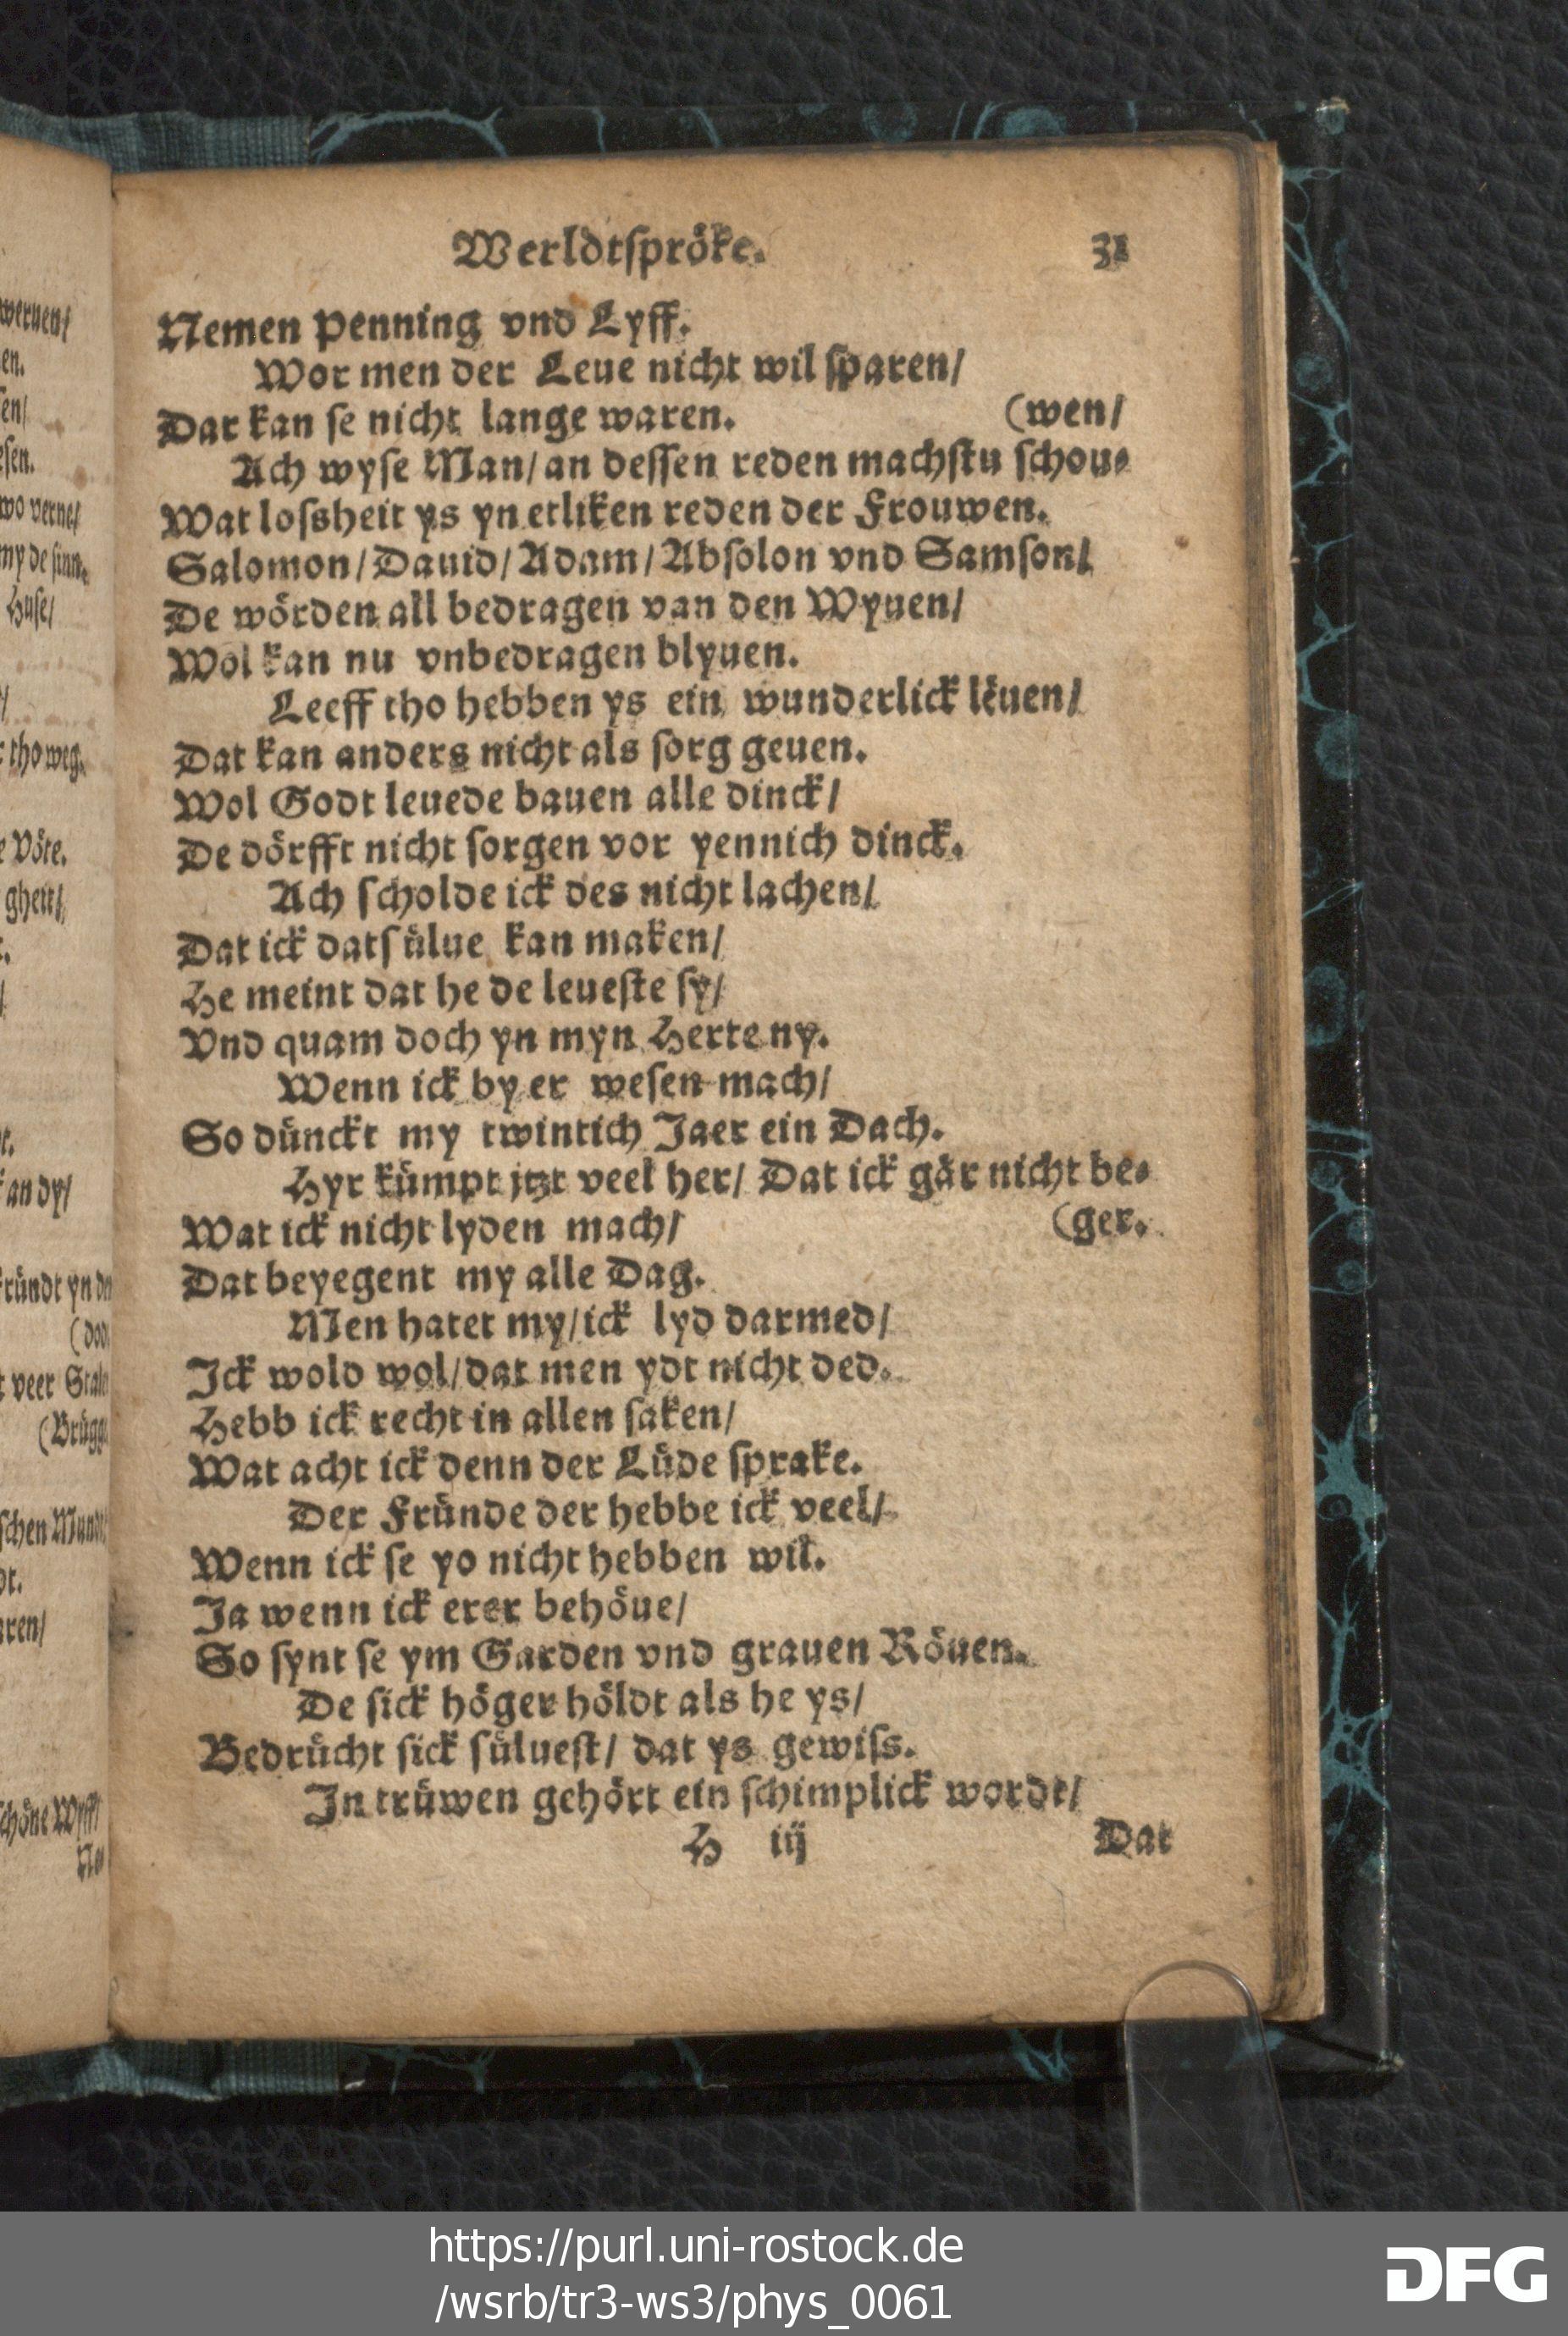 Werldtspröke. 31
Nemen Penning vnd Lyff.
Wor men der Leue nicht wil sparen/
Dar kan se nicht lange waren. (wen/
Ach wyse Man/ an dessen reden machstu schou-
Wat lossheit ys yn etliken reden der Frouwen.
Salomon/ Dauid/ Adam/ Absolon vnd Samson/
De wörden all bedragen van den Wyuen/
Wol kan nu vnbedragen blyuen.
Leeff tho hebben ys ein wunderlick lëuen/
Dat kan anders nicht als sorg geuen.
Wol Godt leuede bauen alle dinck/
De dörfft nicht sorgen vor yennich dinck.
Ach scholde ick des nicht lachen/
Dat ick datsülue kan maken/
He meint dat he de leueste sy/
Vnd quam doch yn myn Herte ny.
Wenn ick by er wesen mach/
So dünckt my twintich Jaer ein Dach.
Hyr kümpt jtzt veel her/ Dat ick gär nicht be-
Wat ick nicht lyden mach/ (ger.
Dat beyegent my alle Dag.
Men hatet my/ ick lyd darmed/
Ick wold wol/ dat men ydt nicht ded.
Hebb ick recht in allen saken/
Wat acht ick denn der Lüde sprake.
Der Fründe der hebbe ick veel/
Wenn ick se yo nicht hebben wil.
Ja wenn ick erer behöue/
So synt se ym Garden vnd grauen Röuen.
De sick höger höldt als he ys/
Bedrücht sick süluest/ dat ys gewiss.
In trüwen gehört ein schimplick wordt/
H iij Dat
weruen/
en.
en/
wo verne/
my de sinn.
Huse/
tho weg.
Vöte.
gheit/
an dy/
fründt yn
veer
schen
aren/
schöne Wyff/
https://purl.uni-rostock.de
/wsrb/tr3-ws3/phys_0061
DFG